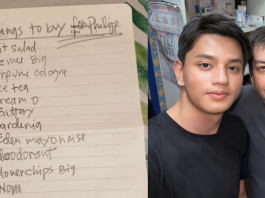 ings to buy for Philipp
t salad
Big
rfume cologne
ce tea
ream O
Buttery
ardenia
Eden mayonaise
eodorant
owerchips Big
Nova